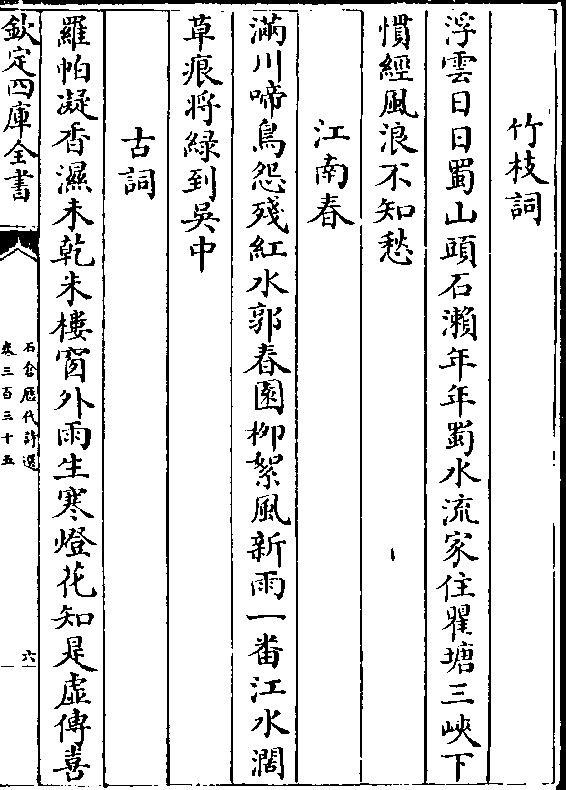 竹枝詞
浮雲日日蜀山頭石瀨年年蜀水流家住瞿塘三峽下
慣經風浪不知愁
江南春
滿川啼鳥怨殘紅水郭春園柳絮風新雨一番江水濶
草痕將綠到吳中
古詞
羅帕凝香濕未乾朱樓窗外雨生寒燈花知是虛傳喜
欽定四庫全書
石倉歷代詩選
卷三百三十五
六